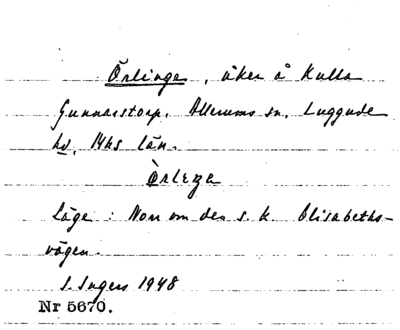 Örlinge, åker å Kulla
Gunnarstorp, Allerums sn, Luggude
hd, Mhs län.
Örleza
Läge: Norr om den s. k. Elisabeths-
vägen.
S. Ingers 1948
Nr 5670.